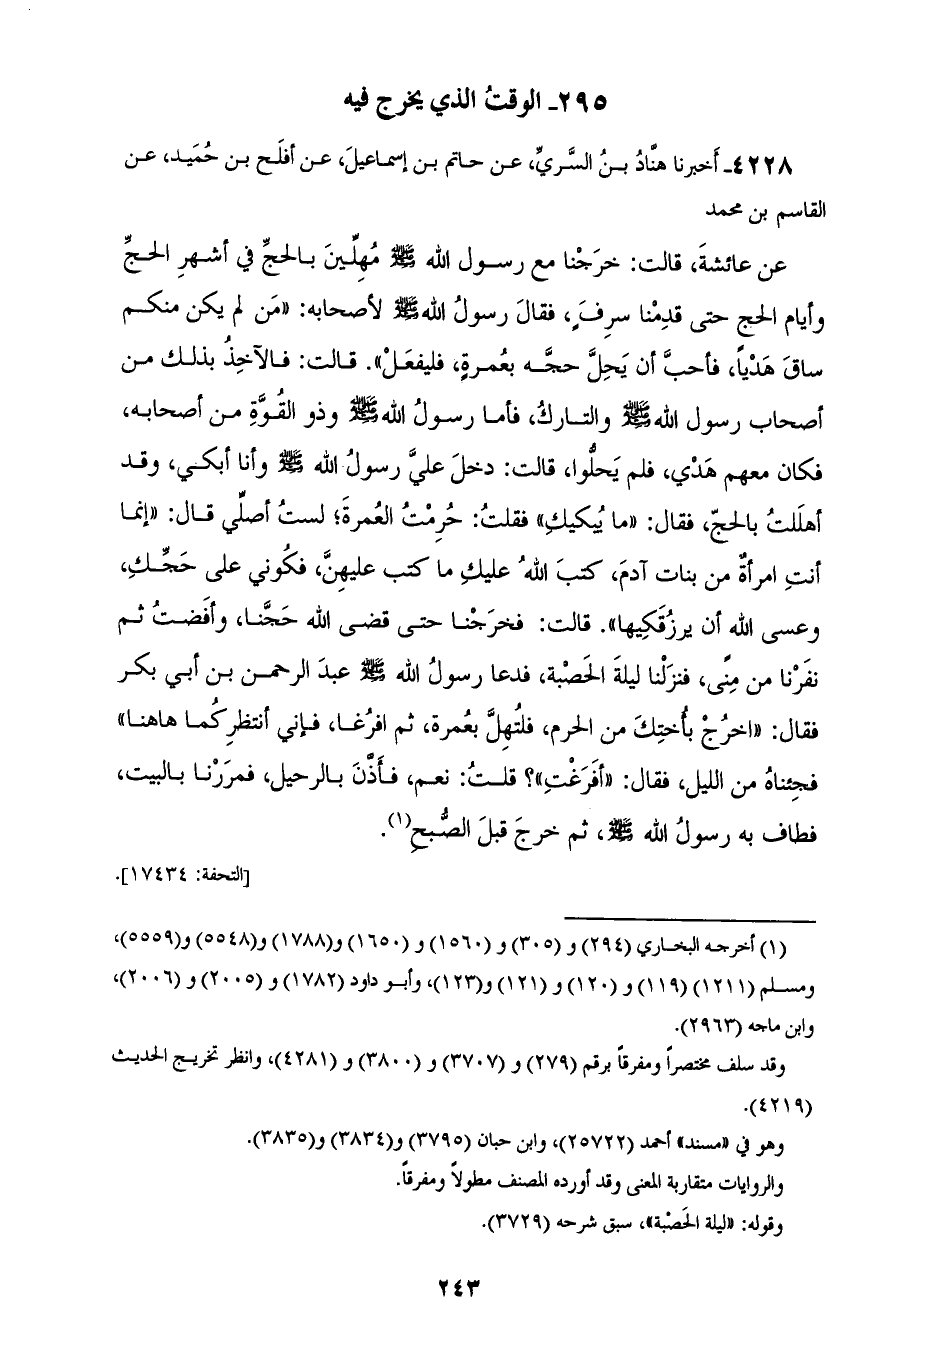 ٢٩٥ـ الوقتُ الذي يخرج فيه
٤٢٢٨ـ أَخبرنا هنَّادُ بـنُ السَّريِّ، عـن حـاتم بـن إسمـاعيلَ، عـن أفلَـح بـن حُمَيـد، عـن
القاسم بن محمد
عن عائشةَ، قالت: خرَجْنا مع رسـول الله ﷺ مُهِلِّـينَ بـالحجِّ في أشهـرِ الحـجِّ
وأيام الحج حتى قدِمْنا سرِفَ، فقالَ رسولُ الله ﷺ لأصحابه: «مَن لم يكن منكـم
ساقَ هَدْياً، فأحبَّ أن يَحِلَّ حجَّـه بعُمـرةٍ، فليفعَلْ». قـالت: فـالآخِذُ بذلـك مـن
أصحاب رسول الله ﷺ والتـاركُ، فأمـا رسـولُ الله ﷺ وذو القُوَّةِ مـن أصحابـه،
فكان معهم هَدْي، فلم يَحلُّوا، قالت: دخلَ عليَّ رسولُ الله ﷺ وأنا أبكـي، وقـد
أهلَلتُ بالحجّ، فقال: «ما يُبكيكِ» فقلتُ: حُرِمْتُ العُمرةَ؛ لستُ أصلِّي قـال: «إنمـا
أنتِ امرأةٌ من بنات آدمَ، كتبَ اللهُ عليكِ ما كتب عليهنَّ، فكُوني على حَجِّـكِ،
وعسى الله أن يرزُقَكِيها». قالت: فخرَجْنـا حتـى قضـى الله حَجَّنـا، وأَفَضـتُ ثـم
نفَرْنا من مِنًى، فنزَلْنا ليلةَ الحَصْبة، فدعا رسولُ الله ﷺ عبدَ الرحمـن بـن أبـي بكر
فقال: «اخرُجْ بأُختِكَ من الحرم، فلتُهِلَّ بعُمرة، ثم افرُغـا، فـإني أنتظركُمـا هاهنـا»
فجِئناهُ من الليل، فقال: «أفَرَغْتِ»؟ قلـتُ: نعـم، فـأَذَّنَ بـالرحيل، فمرَرْنـا بـالبيت،
فطاف به رسولُ الله ﷺ، ثم خرجَ قبلَ الصُّبحِ(١).
[التحفة: ١٧٤٣٤].
(١) أخرجه البخـاري (٢٩٤) و (٣٠٥) و (١٥٦٠) و (١٦٥٠) و(١٧٨٨) و(٥٥٤٨) و(٥٥٥٩)،
ومسلـم (١٢١١) (١١٩) و (١٢٠) و (١٢١) و(١٢٣)، وأبـو داود (١٧٨٢) و (٢٠٠٥) و (٢٠٠٦)،
وابن ماجه (٢٩٦٣).
وقد سلف مختصراً ومفرقاً برقم (٢٧٩) و (٣٧٠٧) و (٣٨٠٠) و (٤٢٨١)، وانظر تخريـج الحديـث
(٤٢١٩).
وهو في «مسند» أحمد (٢٥٧٢٢)، وابن حبان (٣٧٩٥) و(٣٨٣٤) و(٣٨٣٥).
والروايات متقاربة المعنى وقد أورده المصنف مطولاً ومفرقاً.
وقوله: «ليلة الحَصْبة»، سبق شرحه (٣٧٢٩).
٢٤٣